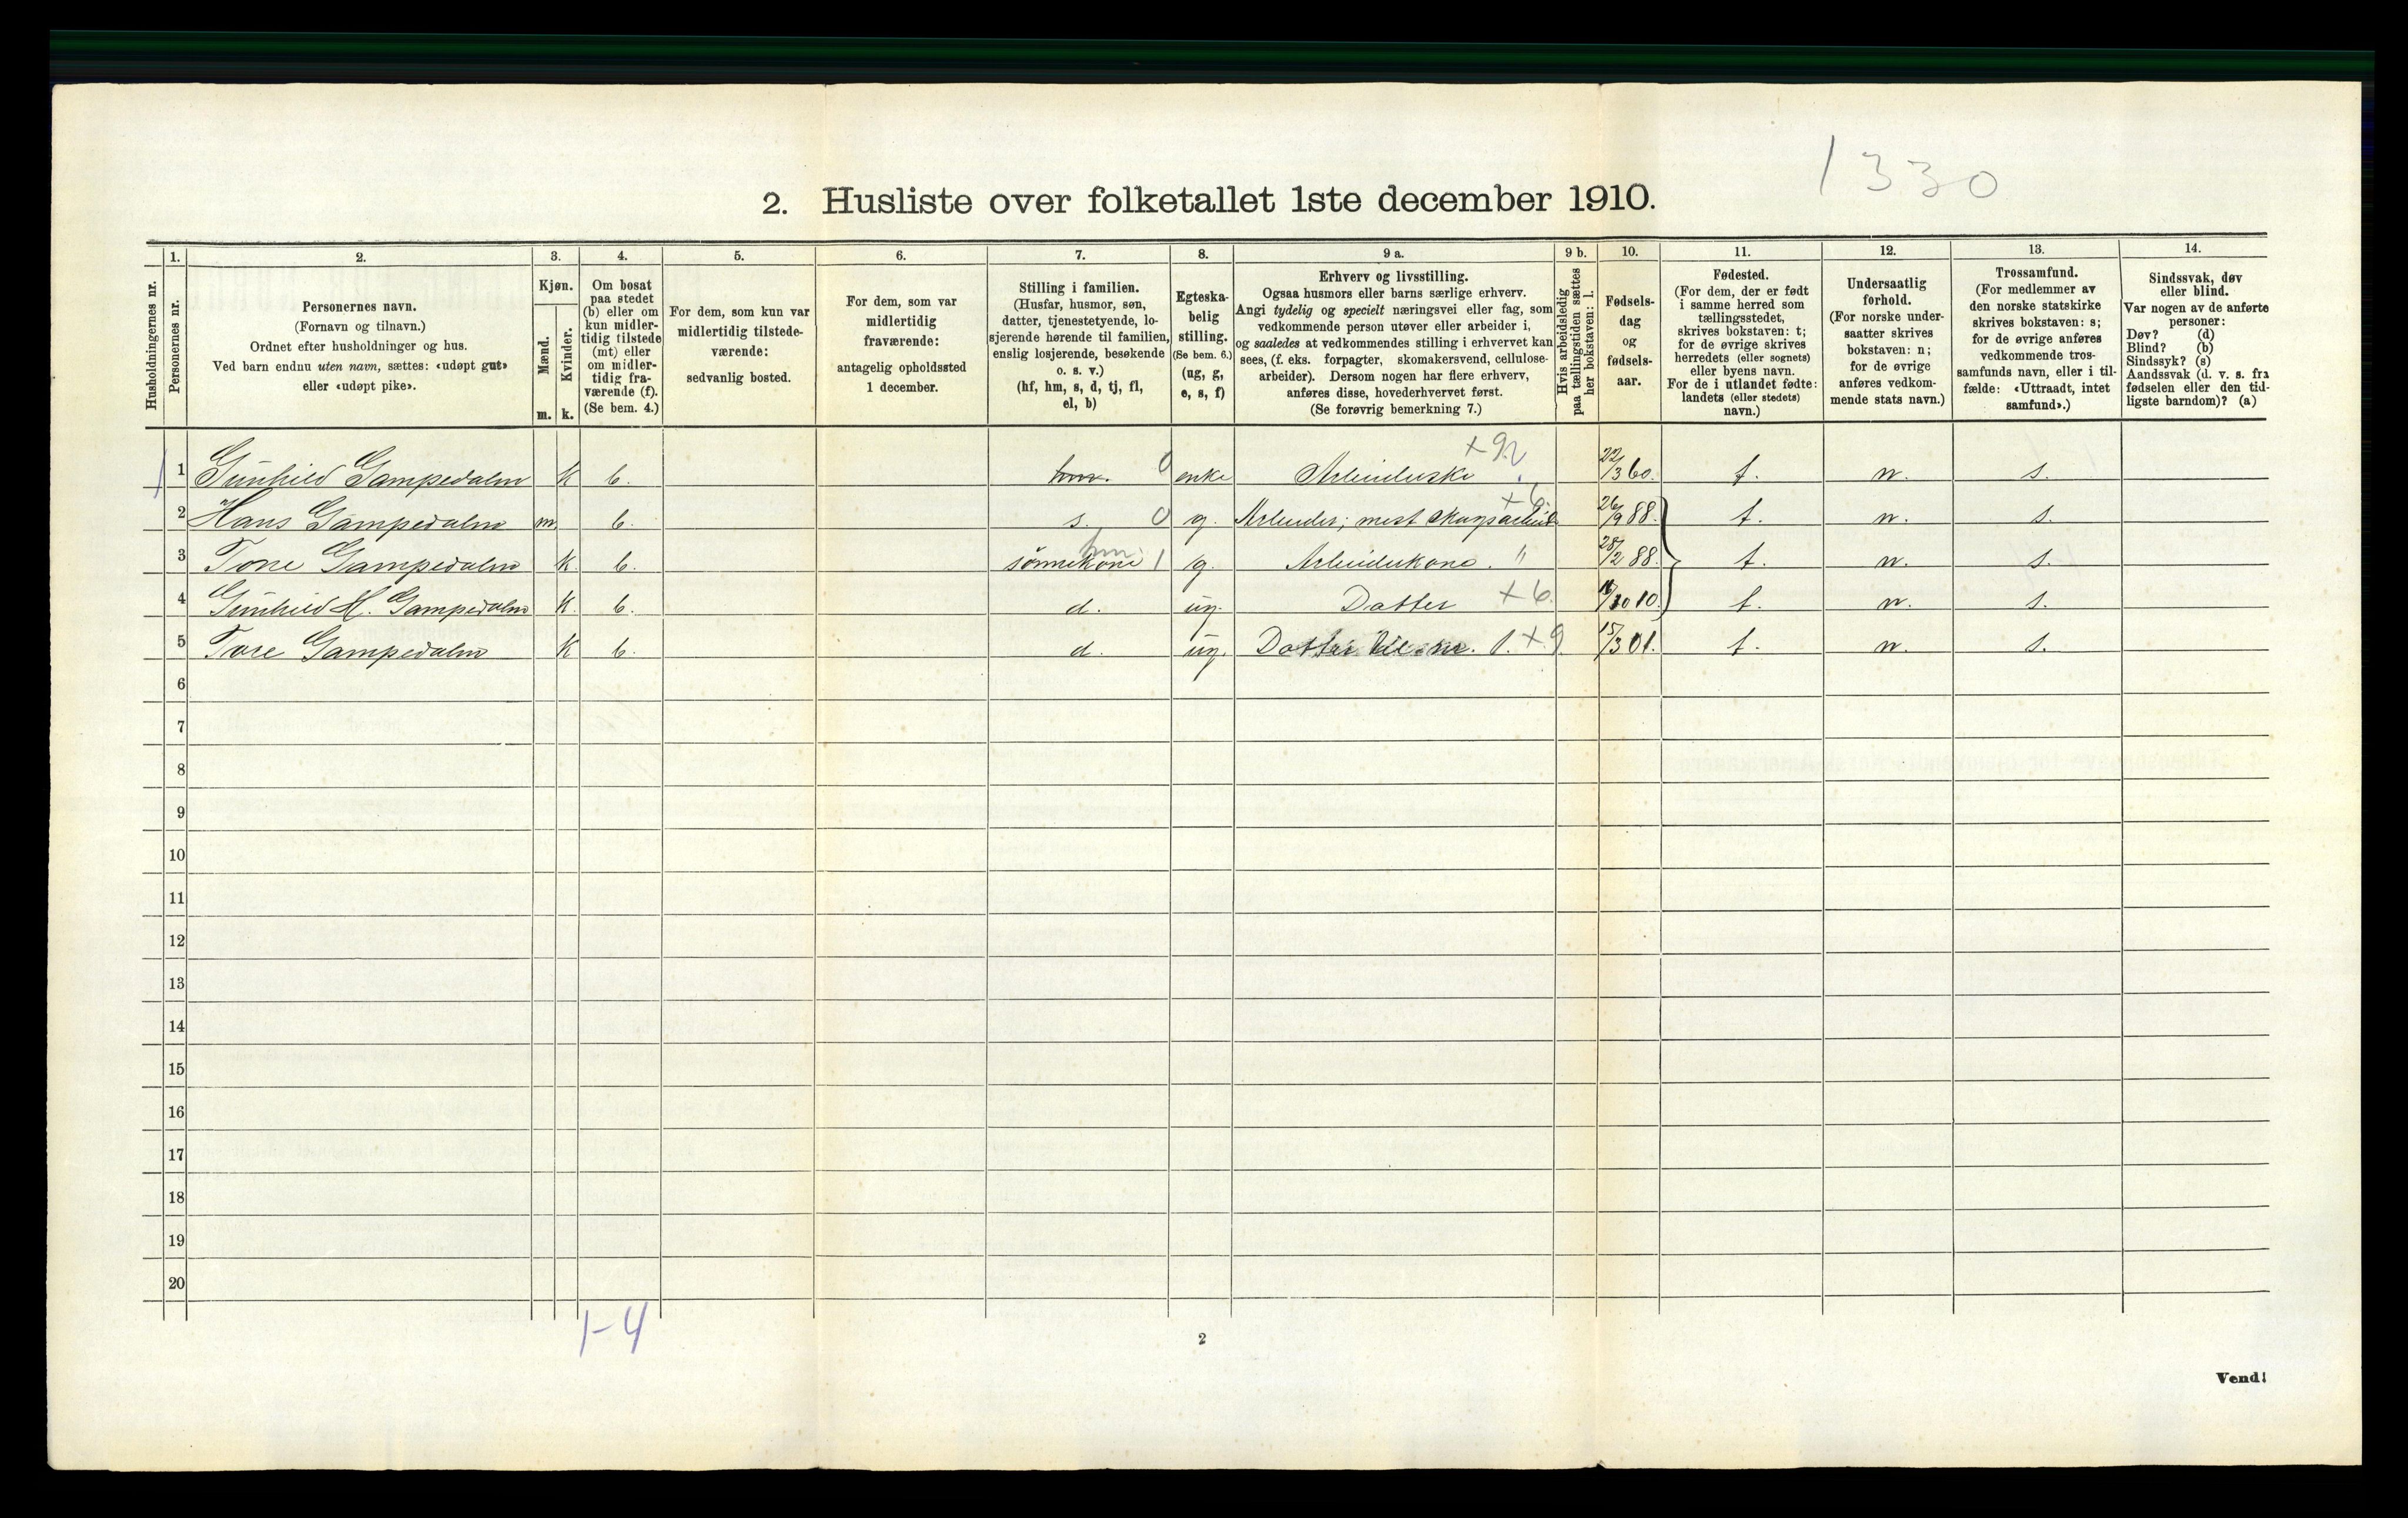 1330
2. Husliste over folketallet 1ste december 1910.
Husholdningernes nr.
1.
Personernes nr.
2.
Personernes navn.
(Fornavn og tilnavn.)
Ordnet efter husholdninger og hus.
Ved barn endnu uten navn, sættes: «udøpt gut»
eller «udøpt pike».
3.
Kjøn.
Mænd.
Kvinder.
m. k.
4.
Om bosat
paa stedet
(b) eller om
kun midler-
tidig tilstede
(mt) eller
om midler-
tidig fra-
værende (f).
(Se bem. 4.)
5.
For dem, som kun var
midlertidig tilstede-
værende:
sedvanlig bosted.
6.
For dem, som var
midlertidig
fraværende:
antagelig opholdssted
1 december.
7.
Stilling i familien.
(Husfar, husmor, søn,
datter, tjenestetyende, lo-
sjerende hørende til familien,
enslig losjerende, besøkende
o. s. v.)
(hf, hm, s, d, tj, fl,
el, b)
8.
Egteska-
belig
stilling.
(Se bem. 6.)
(ug, g,
e, s, f)
9 a.
Erhverv og livsstilling.
Ogsaa husmors eller barns særlige erhverv.
Angi tydelig og specielt næringsvei eller fag, som
vedkommende person utøver eller arbeider i,
og saaledes at vedkommendes stilling i erhvervet kan
sees, (f. eks. forpagter, skomakersvend, cellulose-
arbeider). Dersom nogen har flere erhverv,
anføres disse, hovederhvervet først.
(Se forøvrig bemerkning 7.)
9 b.
Hvis arbeidsledig
paa tællingstiden sættes
her bokstaven: l.
10.
Fødsels-
dag
og
fødsels-
aar.
11.
Fødested.
(For dem, der er født
i samme herred som
tællingsstedet,
skrives bokstaven: t;
for de øvrige skrives
herredets (eller sognets)
eller byens navn.
For de i utlandet fødte:
landets (eller stedets)
navn.)
12.
Undersaatlig
forhold.
(For norske under-
saatter skrives
bokstaven: n;
for de øvrige
anføres vedkom-
mende stats navn.)
13.
Trossamfund.
(For medlemmer av
den norske statskirke
skrives bokstaven: s;
for de øvrige anføres
vedkommende tros-
samfunds navn, eller i til-
fælde: «Uttraadt, intet
samfund».)
14.
Sindssvak, døv
eller blind.
Var nogen av de anførte
personer:
Døv? (d)
Blind? (b)
Sindssyk? (s)
Aandssvak (d. v. s. fra
fødselen eller den tid-
ligste barndom)? (a)
1 Gunhild Gampedalen k b. hm. 0 enke Arbeiderske +92 22/3 60. t. n. s.
2 Hans Gampedalen m b. s. 0 g. Arbeider; mest skogsarbeid +6. 26/9 88. t. n. s.
3 Tone Gampedalen k. b. sønnekone hm. 1 g. Arbeiderkone. " 28/2 88. t. n. s.
4 Gunhild H. Gampedalen k. b. d. ug. Datter +6. /10 10. t. n. s.
5 Tore Gampedalen k b. d. ug. Datter til nr. 1. +9 15/3 01. t. n. s.
6
7
8
9
10
11
12
13
14
15
16
17
18
19
20
1-4
2
Vend!